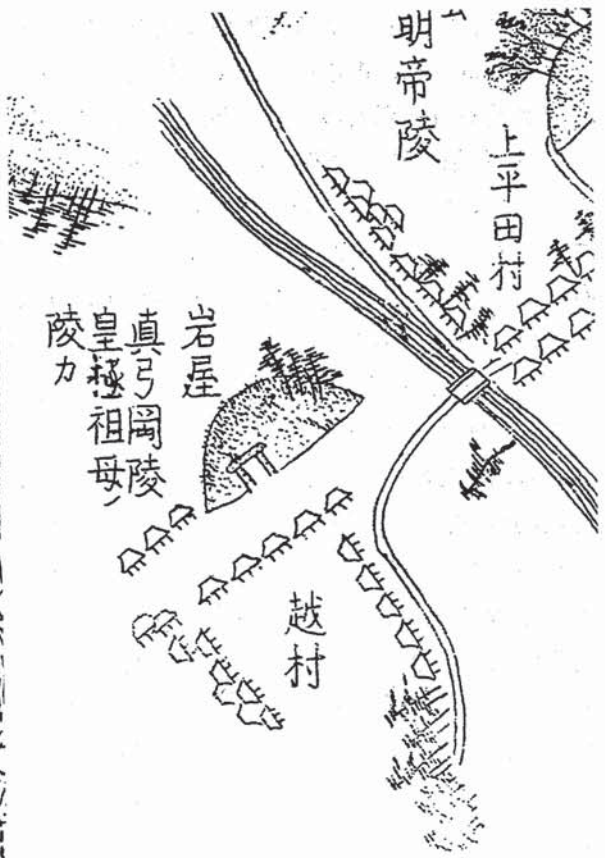 明帝陵
上平田村
岩屋
真弓岡陵
皇極祖母ノ
陵カ
越村